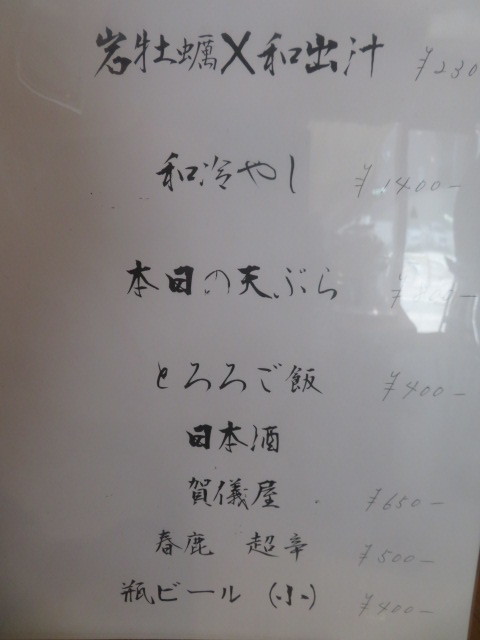 岩牡蠣×和出汁 ¥230
和冷やし ¥1400-
本日の天ぷら
とろろご飯 ¥400-
日本酒
賀儀屋 ¥650-
春鹿 超辛 ¥500-
瓶ビール (小) ¥400-